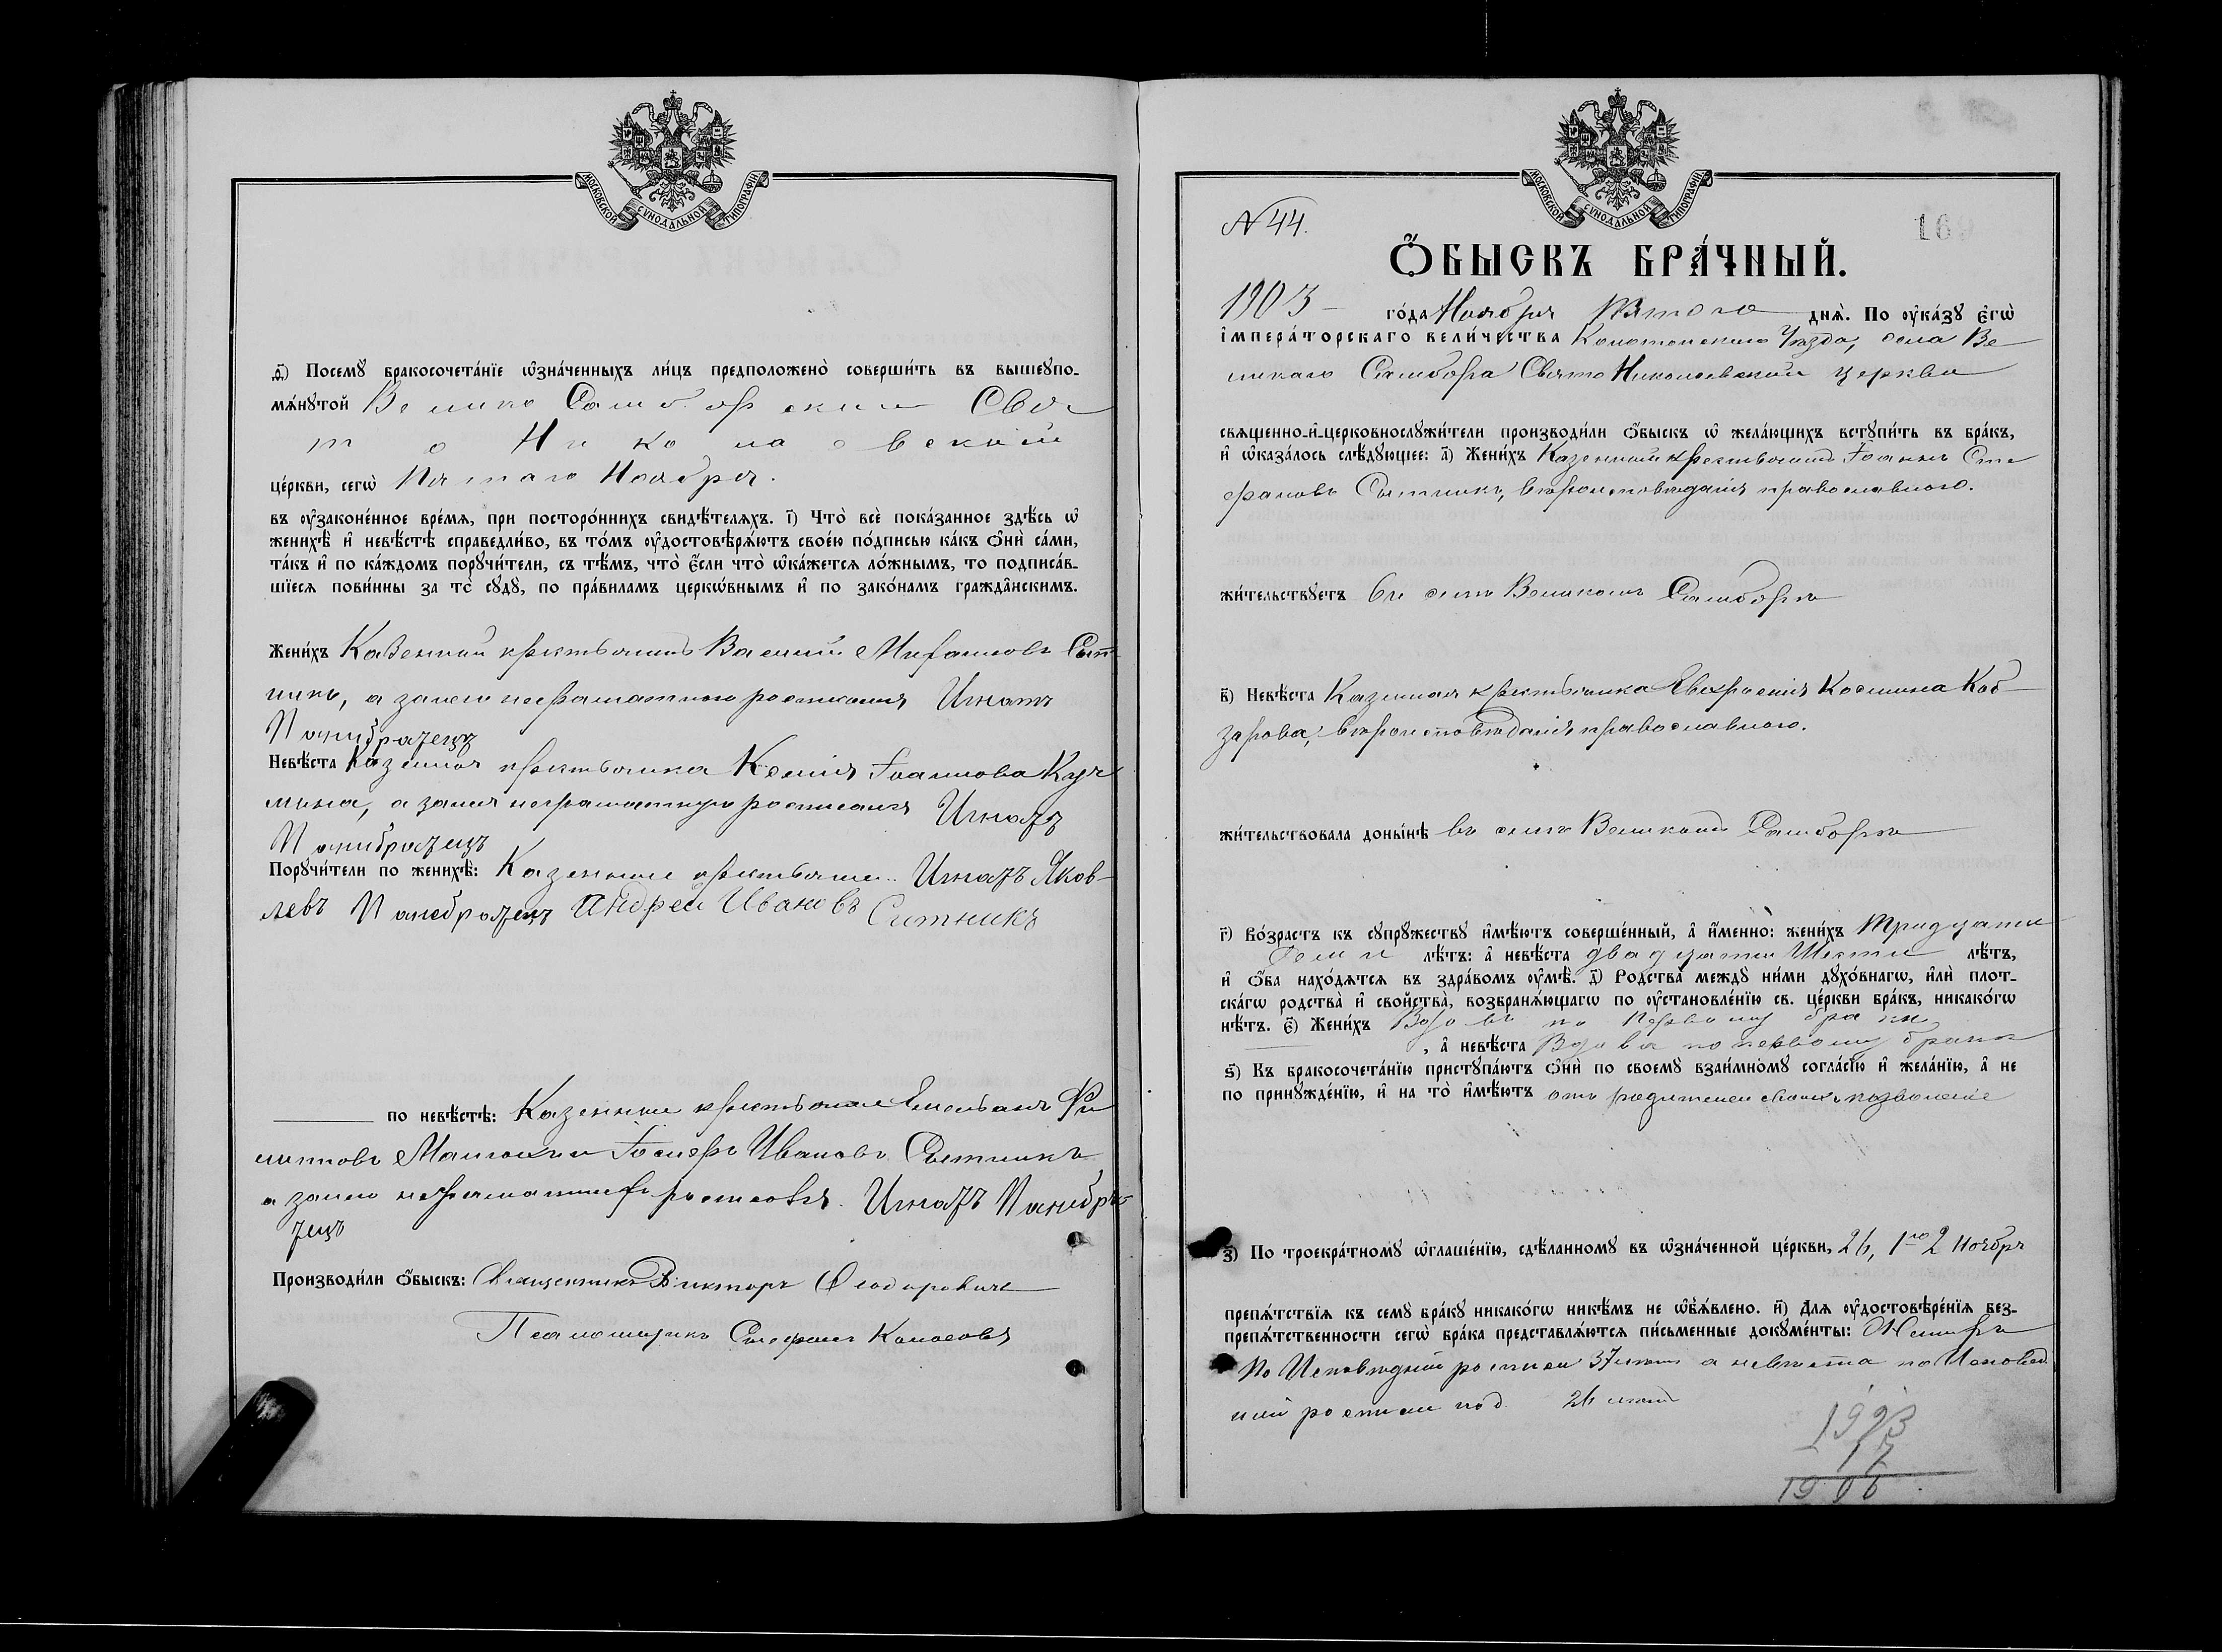 МОСКОВСКОЙ СѴНОДАЛЬНОЙ ТИПОГРАФІИ
д҃) Посемꙋ̀ бракосочета́нїе ѡ҆зна́ченныхъ ли́цъ предположено̀ соверши́ть въ вышеꙋпо-
мѧ́нꙋтой Велико Самборской Свя
то Николаевской
це́ркви, сегѡ̀ Пятаго Ноября.
въ ᲂу҆законе́нное вре́мѧ, при посторо́ннихъ свидѣ́телѧхъ. і҃) Что̀ всѐ пока́занное здѣ́сь ѡ҆
женихѣ̀ и҆ невѣ́стѣ справедли́во, въ то́мъ ᲂу҆достовѣрѧ́ютъ свое́ю по́дписью ка́къ ѻ҆нѝ са́ми,
та́къ и҆ по ка́ждомъ порꙋчи́тели, съ тѣ́мъ, что̀ є҆́сли что̀ ѡ҆ка́жетсѧ ло́жнымъ, то подписа́в-
шїесѧ пови́нны за то̀ сꙋдꙋ̀, по пра́виламъ церкѡ́внымъ и҆ по зако́намъ гражда̂нскимъ.
Жени́хъ Казенный крестьянинъ Василій Сыт
никъ, а занего неграмотного росписался Игнатъ
Панибратецъ
Невѣ́ста Казенная крестьянка Ксенія Іоаннова
а занея неграмотную росписался Игнатъ
Панибратецъ
Порꙋчи́тели по женихѣ̀: Казенные крестьяне Игнатъ Яков-
левъ Панибратецъ Андрей Ивановъ Ситникъ
по невѣ́стѣ: Казенные крестьяне Емельянъ Фи
липповъ Іосифъ Ивановъ Сытникъ
а занихъ неграмотныхъ росписався. Игнатъ Панибра
тецъ
Производи́ли ѻ҆́быскъ: Священникъ Викторъ Ѳеодоровичъ
Псаломщикъ Стефанъ Колосовъ
МОСКОВСКОЙ СѴНОДАЛЬНОЙ ТИПОГРАФІИ
N 44.
160
Ѻ҆́БЫСКЪ БРА́ЧНЫЙ.
1903 го́да Ноября Пятого днѧ̀. По ᲂу҆ка́зꙋ є҆гѡ̀
і҆мпера́торскаго вели́чества Конотопскаго Уѣзда, села Ве
ликаго Самбора Свято Николаевской церкви
свѧще́нно-и҆-церковнослꙋжи́тели производи́ли ѻ҆́быскъ ѡ҆ жела́ющихъ встꙋпи́ть въ бра́къ,
и҆ ѡ҆каза́лось слѣ́дꙋющее: а҃) Жени́хъ Казенный крестьянинъ Іоаннъ Сте
фановъ Сытникъ, вѣроисповѣданія православного.
жи́тельствꙋетъ въ селѣ Великомъ Самборѣ
в҃) Невѣ́ста Казенная крестьянка Евфросинія Косьмина Коб
зарова, вѣроисповѣданія православного.
жи́тельствовала доны́нѣ въ селѣ Великомъ Самборѣ
г҃) Во́зрастъ къ сꙋпрꙋ́жествꙋ и҆мѣ́ютъ соверше́нный, а҆ и҆́менно: жени́хъ Тридцати
Семи лѣ́тъ: а҆ невѣ́ста двадцати Шести лѣ́тъ,
и҆ ѻ҆́ба нахо́дѧтсѧ въ здра́вомъ ᲂу҆мѣ̀. д҃) Родства̀ междꙋ̀ ни́ми дꙋхо́внагѡ, и҆лѝ плот-
ска́гѡ родства̀ и҆ сво́йства̀, возбранѧ́ющагѡ по ᲂу҆становле́нїю св. це́ркви бра́къ, никако́гѡ
нѣ́тъ. є҃) Жени́хъ Вдовъ по первому браку
, а҆ невѣ́ста Вдова по первому браку
ѕ҃) Къ бракосочета́нїю пристꙋпа́ютъ ѻ҆нѝ по своемꙋ̀ взаи́мномꙋ согла́сїю и҆ жела́нїю, а҆ не
по принꙋжде́нїю, и҆ на то̀ и҆мѣ́ютъ отъ родителей своихъ позволеніе
з҃) По троекра́тномꙋ ѡ҆глаше́нїю, сдѣ́ланномꙋ въ ѡ҆зна́ченной це́ркви, 26, 1го 2 Ноября
препѧ́тствїѧ къ семꙋ̀ бра́кꙋ никако́гѡ никѣ́мъ не ѡ҆б̾ѧ́влено. и҃) Длѧ ᲂу҆достовѣре́нїѧ без-
препѧ́тственности сегѡ̀ бра́ка представлѧ́ютсѧ пи́сьменные докꙋме́нты: Женихъ
по Исповѣдной росписи 37 лѣтъ а невѣста по Исповѣд
ной росписи под. 26 лѣтъ
1923
17
1906